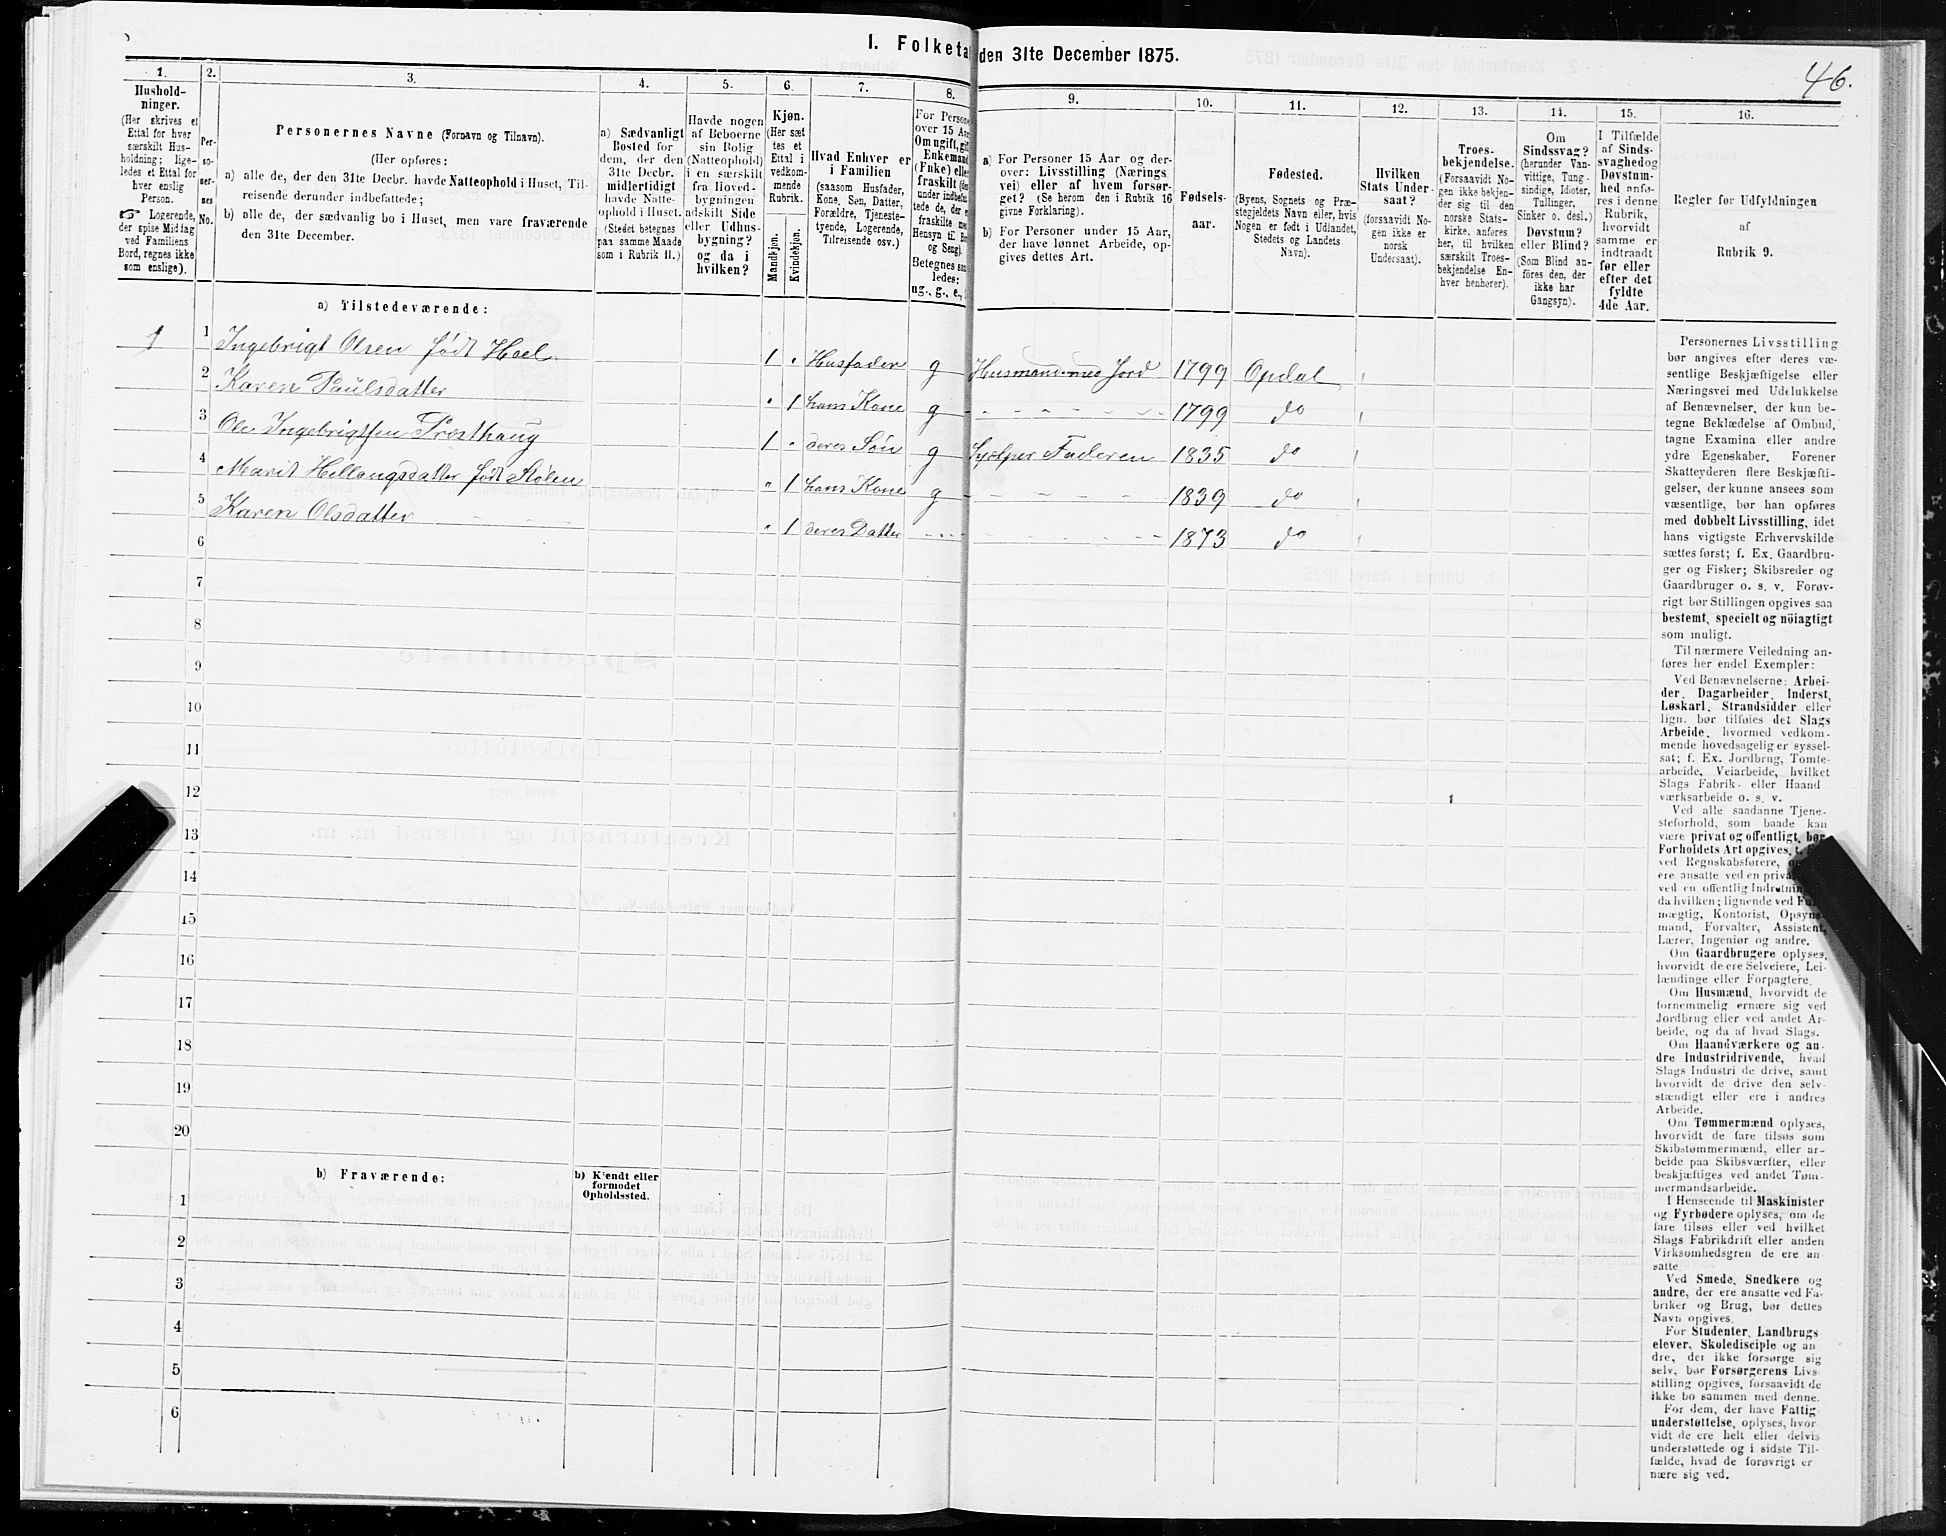 1. Folketa den 31te December 1875.
46.
1. 2. 3. 4. 5. 6. 7. 8. 9. 10. 11. 12. 13. 14. 15. 16.
Hushold-
ninger.
(Her skrives et
Ettal for hver
særskilt Hus-
holdning; lige-
ledes et Ettal for
hver enslig
Person.
Logerende,
der spise Middag
ved Familiens
Bord, regnes ikke
som enslige).
Per-
so-
ner-
nes
No.
Personernes Navne (Fornavn og Tilnavn).
(Her opføres:
a) alle de, der den 31te Decbr. havde Natteophold i Huset, Til-
reisende derunder indbefattede;
b) alle de, der sædvanlig bo i Huset, men vare fraværende
den 31te December.
a) Sædvanligt
Bosted for
dem, der den
31te Decbr.
midlertidigt
havde Natte-
ophold i Huset.
(Stedet betegnes
paa samme Maade
som i Rubrik 11.)
Havde nogen
af Beboerne
sin Bolig
(Natteophold)
i en særskilt
fra Hoved-
bygningen
adskilt Side
eller Udhus-
bygning?
og da i
hvilken?
Kjøn.
(Her sæt
tes et
Ettal i
vedkom-
mende
Rubrik.
Mandkjøn.
Kvindekjøn.
Hvad Enhver er
i Familien
(saasom Husfader,
Kone, Søn, Datter,
Forældre, Tjeneste-
tyende, Logerende,
Tilreisende osv.)
For Persone
over 15 Aar
Om ugift, gift
Enkemand
(Enke) elle
fraskilt
under indbefat
tede de, der e
fraskilte m
Hensyn til Bo
og Seng).
Betegnes saa
ledes:
ug., g., e.,
a) For Personer 15 Aar og der-
over: Livsstilling (Nærings
vei) eller af hvem forsør-
get? (Se herom den i Rubrik 16
givne Forklaring).
b) For Personer under 15 Aar,
der have lønnet Arbeide, op-
gives dettes Art.
Fødsels-
aar.
Fødested.
(Byens, Sognets og Præ-
stegjeldets Navn eller, hvis
Nogen er født i Udlandet,
Stedets og Landets
Navn).
Hvilken
Stats Under-
saat?
(forsaavidt No-
gen ikke er
norsk
Undersaat).
Troes-
bekjendelse.
(Forsaavidt No-
gen ikke bekjen-
der sig til den
norske Stats-
kirke, anføres
her, til hvilken
særskilt Troes-
bekjendelse En-
hver henhører).
Om
Sindssvag?
(herunder Van-
vittige, Tung-
sindige, Idioter,
Tullinger,
Sinker o. desl.)
Døvstum?
eller Blind?
(Som Blind an-
føres den, der
ikke har
Gangsyn).
I Tilfælde
af Sinds-
svaghed og
Døvstum-
hed anfø-
res i denne
Rubrik,
hvorvidt
samme er
indtraadt
før eller
efter det
fyldte
4de Aar.
Regler før Udfyldningen
af
Rubrik 9.
a) Tilstedeværende:
1 1 Ingebrigt Olsen født Hoel 1 " Husfader g Husmand med Jord 1799 Opdal
2 Karen Paulsdatter " 1 hans Kone g 1799 do
3 Ole Ingebrigtsen Trosthaug 1 " deres Søn g Hjælper Faderen 1835 do
4 Marit Hellangsdatter født Stølen " 1 hans Kone g 1839 do
5 Karen Olsdatter " 1 deres Datter 1873 do
6
7
8
9
10
11
12
13
14
15
16
17
18
19
20
b) Fraværende:
b) Kjendt eller
formodet
Opholdssted.
1
2
3
4
5
6
Personernes Livsstilling
bør angives efter deres væ-
sentlige Beskjæftigelse eller
Næringsvei med Udelukkelse
af Benævnelser, der kun be-
tegne Beklædelse af Ombud,
tagne Examina eller andre
ydre Egenskaber. Forener
Skatteyderen flere Beskjæfti-
gelser, der kunne ansees som
væsentlige, bør han opføres
med dobbelt Livsstilling, idet
hans vigtigste Erhvervskilde
sættes først; f. Ex. Gaardbru-
ger og Fisker; Skibsreder og
Gaardbruger o. s. v. Forøv-
rigt bør Stillingen opgives saa
bestemt, specielt og nöiagtigt
som muligt.
Til nærmere Veiledning an-
føres her endel Exempler:
Ved Benævnelserne: Arbei-
der, Dagarbeider, Inderst,
Løskarl, Strandsidder eller
lign. bør tilføies det Slags
Arbeide, hvormed vedkom-
mende hovedsagelig er syssel-
sat; f. Ex. Jordbrug, Tomte-
arbeide, Veiarbeide, hvilket
Slags Fabrik- eller Haand
værksarbeide o. s. v.
Ved alle saadanne Tjene-
steforhold, som baade kan
være privat og offentligt, bør
Forholdets Art opgives,
ved Regnskabsførere,
ere ansatte ved en priva
ved en offentlig Indretnin
da hvilken; lignende ved Fu
mægtig, Kontorist, Opsyns-
mand, Forvalter, Assistent,
Lærer, Ingeniør og andre.
Om Gaardbrugere oplyses,
hvorvidt de ere Selveiere, Lei-
lændinge eller Forpagtere.
Om Husmænd, hvorvidt de
fornemmelig ernære sig ved
Jordbrug eller ved andet Ar-
beide, og da af hvad Slags.
Om Haandværkere og an-
dre Industridrivende, hvad
Slags Industri de drive, samt
hvorvidt de drive den selv-
stændigt eller ere i andres
Arbeide.
Om Tømmermænd oplyses,
hvorvidt de fare tilsøs som
Skibstømmermænd, eller ar-
beide paa Skibsværfter, eller
beskjæftiges ved andet Tøm-
mermandsarbeide.
I Henseende til Maskinister
og Fyrbødere oplyses, om de
fare tilsøs eller ved hvilket
Slags Fabrikdrift eller anden
Virksomhedsgren de ere an-
satte.
Ved Smede, Snedkere og
andre, der ere ansatte ved Fa-
briker og Brug, bør dettes
Navn opgives.
For Studenter, Landbrugs
elever, Skoledisciple og an
dre, der ikke forsørge sig
selv, bør Forsørgerens Livs-
stilling opgives, forsaavidt de
ikke bo sammen med denne.
For dem, der have Fattig
understøttelse, oplyses, hvor-
vidt de ere helt eller delvis
understøttede og i sidste Til-
fælde, hvad de forøvrigt er
nære sig ved.